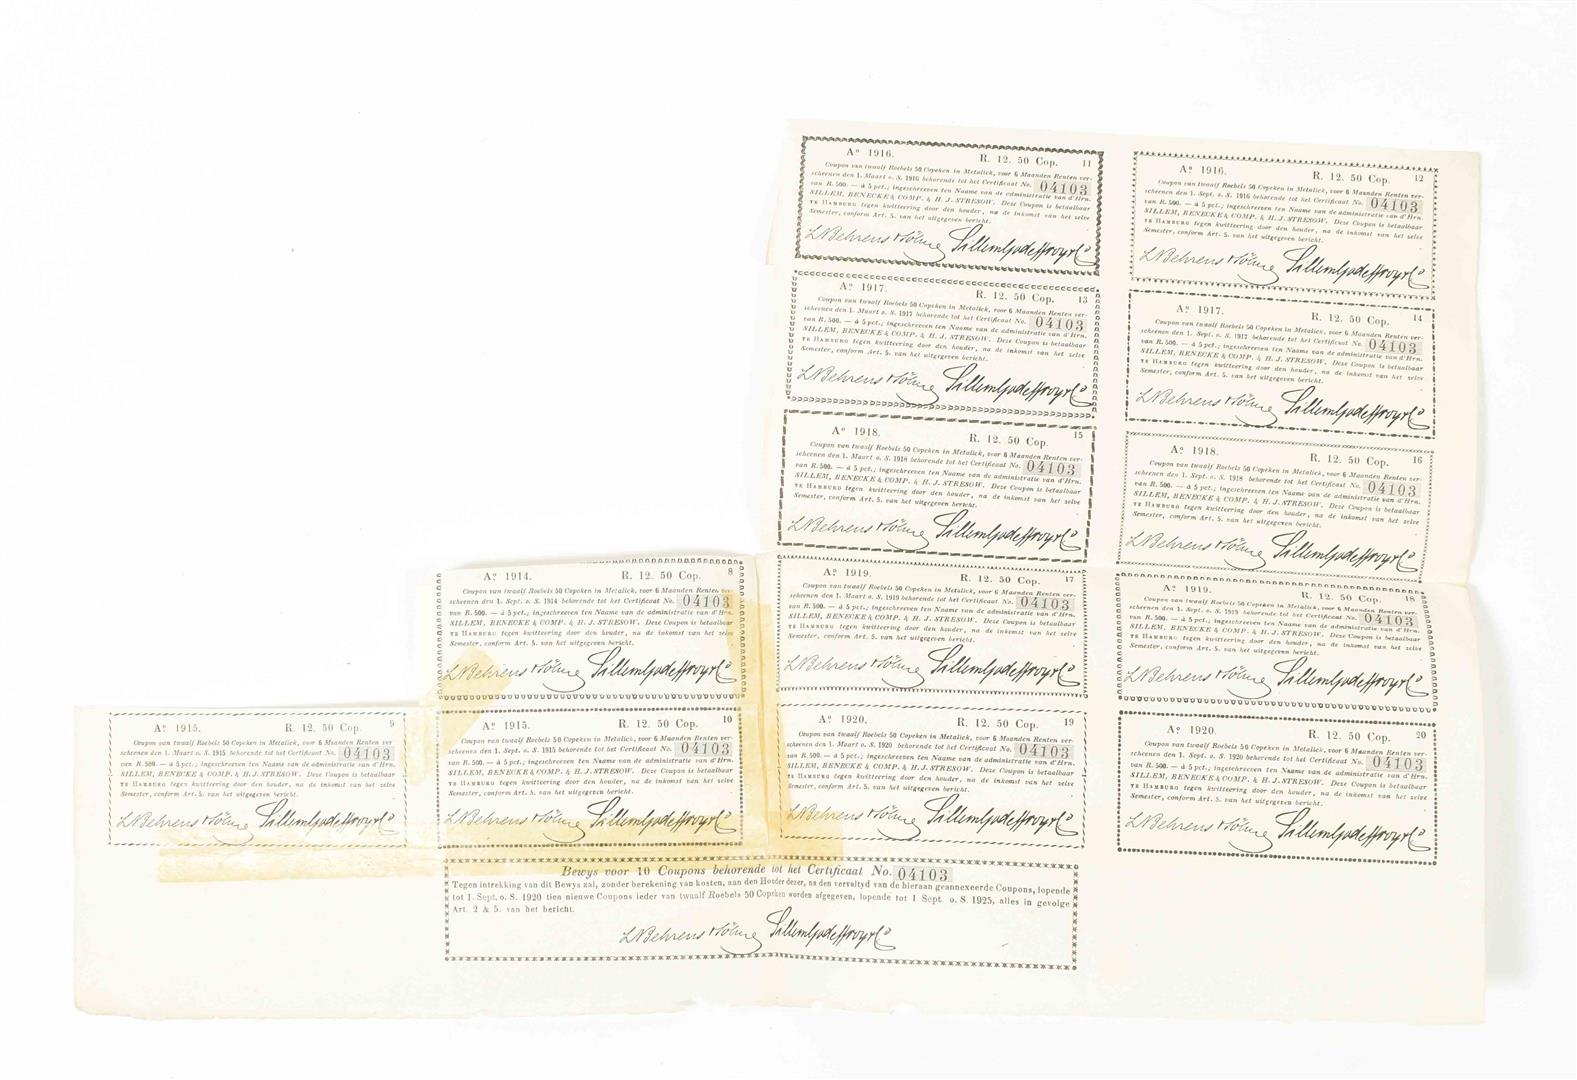 Aº 1916. R. 12. 50 Cop. 11
Coupon van twaalf Roebels 50 Copeken in Metalick, voor 6 Maanden Renten ver-
scheenen den 1. Maart o. S. 1916 behorende tot het Certificaat No. 04103
van R. 500. — á 5 pct.; ingeschreeven ten Naame van de administratie van d'Hrn.
SILLEM, BENECKE & COMP. & H. J. STRESOW. Deze Coupon is betaalbaar
TE HAMBURG tegen kwitteering door den houder, na de inkomst van het zelve
Semester, conform Art. 5. van het uitgegeven bericht.
L Behrens & Söhne Sillem Godeffroy & Co
Aº 1916. R. 12. 50 Cop. 12
Coupon van twaalf Roebels 50 Copeken in Metalick, voor 6 Maanden Renten ver-
scheenen den 1. Sept. o. S. 1916 behorende tot het Certificaat No. 04103
van R. 500. — á 5 pct.; ingeschreeven ten Naame van de administratie van d'Hrn.
SILLEM, BENECKE & COMP. & H. J. STRESOW. Deze Coupon is betaalbaar
TE HAMBURG tegen kwitteering door den houder, na de inkomst van het zelve
Semester, conform Art. 5. van het uitgegeven bericht.
L Behrens & Söhne Sillem Godeffroy & Co
Aº 1917. R. 12. 50 Cop. 13
Coupon van twaalf Roebels 50 Copeken in Metalick, voor 6 Maanden Renten ver-
scheenen den 1. Maart o. S. 1917 behorende tot het Certificaat No. 04103
van R. 500. — á 5 pct.; ingeschreeven ten Naame van de administratie van d'Hrn.
SILLEM, BENECKE & COMP. & H. J. STRESOW. Deze Coupon is betaalbaar
TE HAMBURG tegen kwitteering door den houder, na de inkomst van het zelve
Semester, conform Art. 5. van het uitgegeven bericht.
L Behrens & Söhne Sillem Godeffroy & Co
Aº 1917. R. 12. 50 Cop. 14
Coupon van twaalf Roebels 50 Copeken in Metalick, voor 6 Maanden Renten ver-
scheenen den 1. Sept. o. S. 1917 behorende tot het Certificaat No. 04103
van R. 500. — á 5 pct.; ingeschreeven ten Naame van de administratie van d'Hrn.
SILLEM, BENECKE & COMP. & H. J. STRESOW. Deze Coupon is betaalbaar
TE HAMBURG tegen kwitteering door den houder, na de inkomst van het zelve
Semester, conform Art. 5. van het uitgegeven bericht.
L Behrens & Söhne Sillem Godeffroy & Co
Aº 1918. R. 12. 50 Cop. 15
Coupon van twaalf Roebels 50 Copeken in Metalick, voor 6 Maanden Renten ver-
scheenen den 1. Maart o. S. 1918 behorende tot het Certificaat No. 04103
van R. 500. — á 5 pct.; ingeschreeven ten Naame van de administratie van d'Hrn.
SILLEM, BENECKE & COMP. & H. J. STRESOW. Deze Coupon is betaalbaar
TE HAMBURG tegen kwitteering door den houder, na de inkomst van het zelve
Semester, conform Art. 5. van het uitgegeven bericht.
L Behrens & Söhne Sillem Godeffroy & Co
Aº 1918. R. 12. 50 Cop. 16
Coupon van twaalf Roebels 50 Copeken in Metalick, voor 6 Maanden Renten ver-
scheenen den 1. Sept. o. S. 1918 behorende tot het Certificaat No. 04103
van R. 500. — á 5 pct.; ingeschreeven ten Naame van de administratie van d'Hrn.
SILLEM, BENECKE & COMP. & H. J. STRESOW. Deze Coupon is betaalbaar
TE HAMBURG tegen kwitteering door den houder, na de inkomst van het zelve
Semester, conform Art. 5. van het uitgegeven bericht.
L Behrens & Söhne Sillem Godeffroy & Co
Aº 1914. R. 12. 50 Cop. 8
Coupon van twaalf Roebels 50 Copeken in Metalick, voor 6 Maanden Renten ver-
scheenen den 1. Sept. o. S. 1914 behorende tot het Certificaat No. 04103
van R. 500. — á 5 pct.; ingeschreeven ten Naame van de administratie van d'Hrn.
SILLEM, BENECKE & COMP. & H. J. STRESOW. Deze Coupon is betaalbaar
TE HAMBURG tegen kwitteering door den houder, na de inkomst van het zelve
Semester, conform Art. 5. van het uitgegeven bericht.
L Behrens & Söhne Sillem Godeffroy & Co
Aº 1919. R. 12. 50 Cop. 17
Coupon van twaalf Roebels 50 Copeken in Metalick, voor 6 Maanden Renten ver-
scheenen den 1. Maart o. S. 1919 behorende tot het Certificaat No. 04103
van R. 500. — á 5 pct.; ingeschreeven ten Naame van de administratie van d'Hrn.
SILLEM, BENECKE & COMP. & H. J. STRESOW. Deze Coupon is betaalbaar
TE HAMBURG tegen kwitteering door den houder, na de inkomst van het zelve
Semester, conform Art. 5. van het uitgegeven bericht.
L Behrens & Söhne Sillem Godeffroy & Co
Aº 1919. R. 12. 50 Cop. 18
Coupon van twaalf Roebels 50 Copeken in Metalick, voor 6 Maanden Renten ver-
scheenen den 1. Sept. o. S. 1919 behorende tot het Certificaat No. 04103
van R. 500. — á 5 pct.; ingeschreeven ten Naame van de administratie van d'Hrn.
SILLEM, BENECKE & COMP. & H. J. STRESOW. Deze Coupon is betaalbaar
TE HAMBURG tegen kwitteering door den houder, na de inkomst van het zelve
Semester, conform Art. 5. van het uitgegeven bericht.
L Behrens & Söhne Sillem Godeffroy & Co
Aº 1915. R. 12. 50 Cop. 9
Coupon van twaalf Roebels 50 Copeken in Metalick, voor 6 Maanden Renten ver-
scheenen den 1. Maart o. S. 1915 behorende tot het Certificaat No. 04103
van R. 500. — á 5 pct.; ingeschreeven ten Naame van de administratie van d'Hrn.
SILLEM, BENECKE & COMP. & H. J. STRESOW. Deze Coupon is betaalbaar
TE HAMBURG tegen kwitteering door den houder, na de inkomst van het zelve
Semester, conform Art. 5. van het uitgegeven bericht.
L Behrens & Söhne Sillem Godeffroy & Co
Aº 1915. R. 12. 50 Cop. 10
Coupon van twaalf Roebels 50 Copeken in Metalick, voor 6 Maanden Renten ver-
scheenen den 1. Sept. o. S. 1915 behorende tot het Certificaat No. 04103
van R. 500. — á 5 pct.; ingeschreeven ten Naame van de administratie van d'Hrn.
SILLEM, BENECKE & COMP. & H. J. STRESOW. Deze Coupon is betaalbaar
TE HAMBURG tegen kwitteering door den houder, na de inkomst van het zelve
Semester, conform Art. 5. van het uitgegeven bericht.
L Behrens & Söhne Sillem Godeffroy & Co
Aº 1920. R. 12. 50 Cop. 19
Coupon van twaalf Roebels 50 Copeken in Metalick, voor 6 Maanden Renten ver-
scheenen den 1. Maart o. S. 1920 behorende tot het Certificaat No. 04103
van R. 500. — á 5 pct.; ingeschreeven ten Naame van de administratie van d'Hrn.
SILLEM, BENECKE & COMP. & H. J. STRESOW. Deze Coupon is betaalbaar
TE HAMBURG tegen kwitteering door den houder, na de inkomst van het zelve
Semester, conform Art. 5. van het uitgegeven bericht.
L Behrens & Söhne Sillem Godeffroy & Co
Aº 1920. R. 12. 50 Cop. 20
Coupon van twaalf Roebels 50 Copeken in Metalick, voor 6 Maanden Renten ver-
scheenen den 1. Sept. o. S. 1920 behorende tot het Certificaat No. 04103
van R. 500. — á 5 pct.; ingeschreeven ten Naame van de administratie van d'Hrn.
SILLEM, BENECKE & COMP. & H. J. STRESOW. Deze Coupon is betaalbaar
TE HAMBURG tegen kwitteering door den houder, na de inkomst van het zelve
Semester, conform Art. 5. van het uitgegeven bericht.
L Behrens & Söhne Sillem Godeffroy & Co
Bewys voor 10 Coupons behorende tot het Certificaat No. 04103
Tegen intrekking van dit Bewys zal, zonder berekening van kosten, aan den Houder dezer, na den vervaltyd van de hieraan geannexeerde Coupons, lopende
tot 1. Sept. o. S. 1920 tien nieuwe Coupons ieder van twaalf Roebels 50 Copeken worden afgegeven, lopende tot 1. Sept. o. S. 1925, alles in gevolge
Art. 2 & 5. van het bericht.
L Behrens & Söhne Sillem Godeffroy & Co